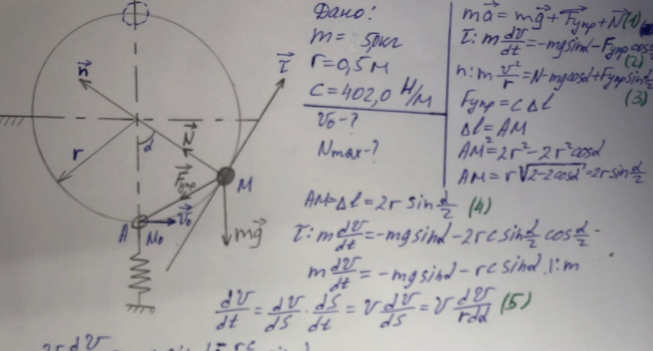 Дано:
m = 50кг
r = 0,5 м
c = 402,0 Н/м
v₀-?
Nmax-?
ma⃗ = mg⃗ + F⃗упр + N⃗ (1)
τ: m dv/dt = -mg sinα - Fупр cos α/2 (2)
n: m v²/r = N - mg cosα + Fупр sin α/2 (3)
Fупр = cΔl
Δl = AM
AM² = 2r² - 2r² cosα
AM = r√(2-2cosα) = 2r sin α/2
n⃗
τ⃗
α
N⃗
r
F⃗упр
M
A
M₀
v⃗₀
mg⃗
AM = Δl = 2r sin α/2 (4)
τ: m dv/dt = -mg sinα - 2rc sin α/2 cos α/2
m dv/dt = -mg sinα - rc sinα |:m
dv/dt = dv/dS · dS/dt = v dv/dS = v dv/rdα (5)